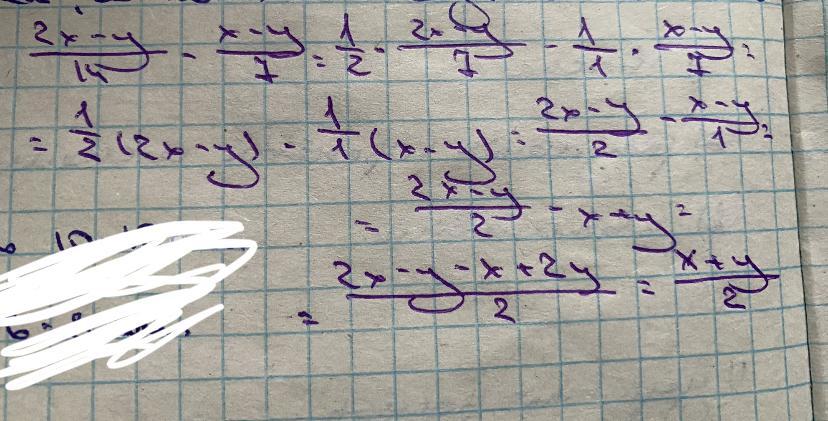 (2x-y)/14 - (x-y)/7 = 1/2 · (2x-y)/7 - 1/1 · (x-y)/7 =
= 1/2 (2x-y) - 1/1 (x-y) = (2x-y)/2 - (x-y)/1 =
= (2x-y)/2 - x+y =
= (2x-y-x+2y)/2 = (x+y)/2